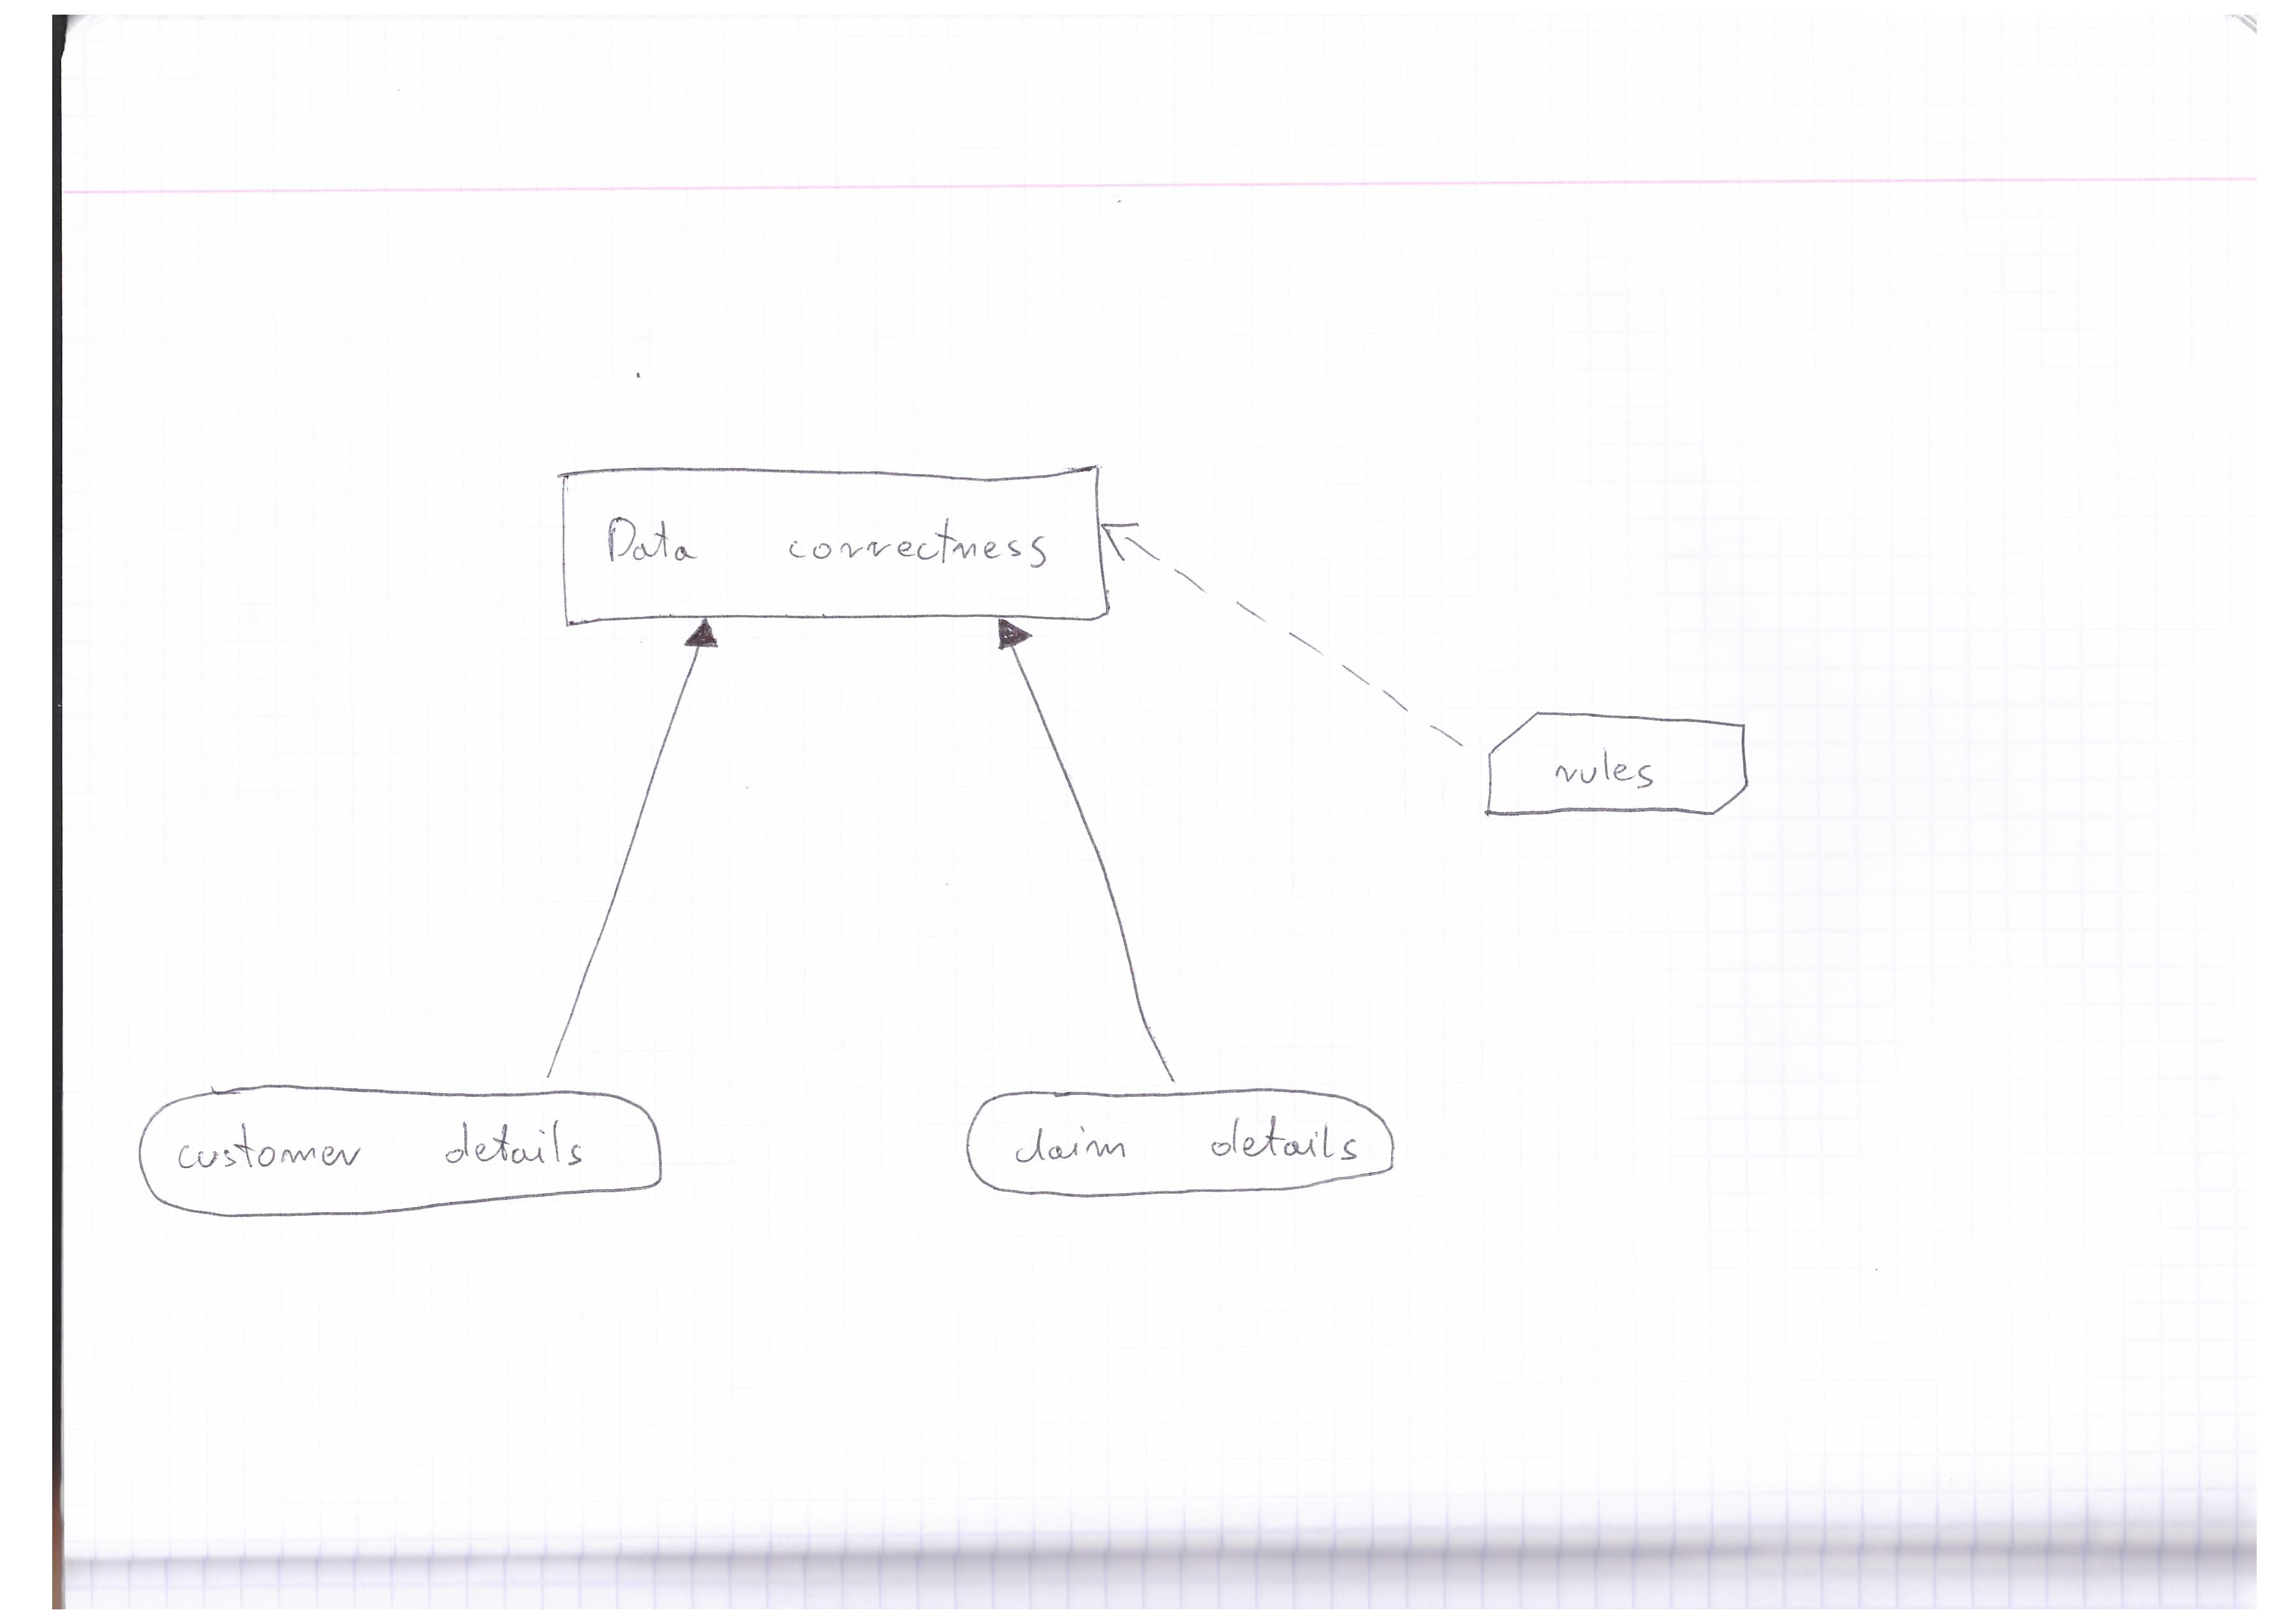 Data correctness
rules
customer details
claim details